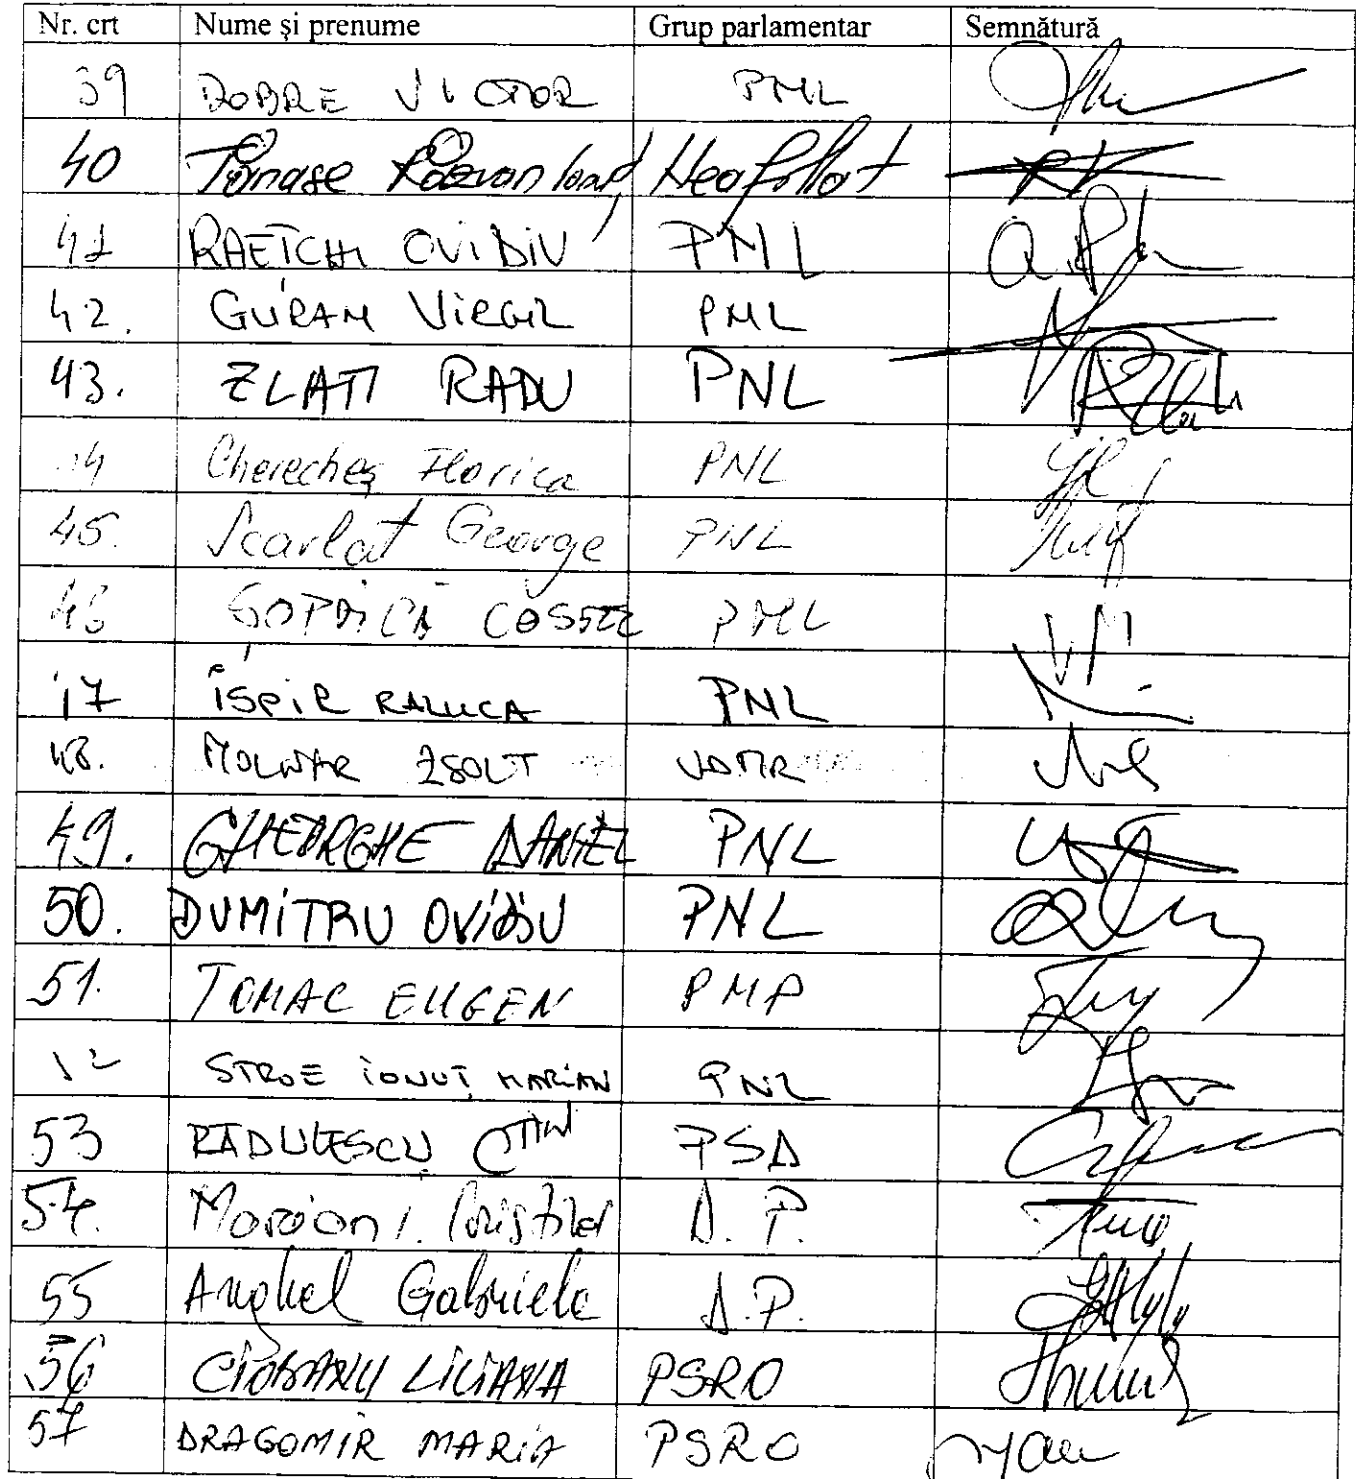 Nr. crt Nume și prenume Grup parlamentar Semnătură
39 DOBRE VICTOR PNL
40 Tănase Răzvan Ioan Neafiliat
41 RAEȚCHI OVIDIU PNL
42. GURAN VIRGIL PNL
43. ZLATI RADU PNL
44 Cherecheș Florica PNL
45. Scarlat George PNL
46 ȘOPTICĂ COSTEL PNL
47 ISPIR RALUCA PNL
48. MOLNAR ZSOLT UDMR
49. GHEORGHE DANIEL PNL
50. DUMITRU OVIDIU PNL
51. TOMAC EUGEN PMP
52 STROE IONUȚ MARIAN PNL
53 RADULESCU CTIN PSD
54. I. Cristinel D.P.
55 Anghel Gabriela D.P.
56 CIOBANU LILIANA PSRO
57 DRAGOMIR MARIA PSRO